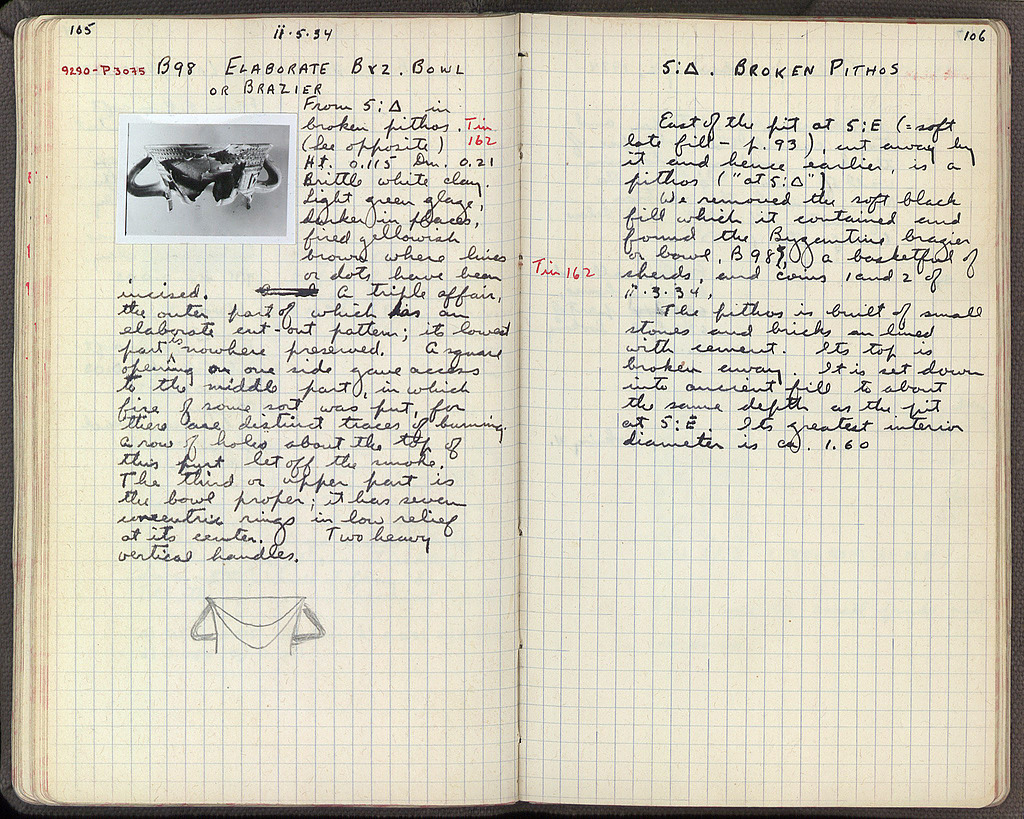 105
ii·5·34
9290-P3075 B98 ELABORATE BYZ. BOWL
OR BRAZIER
From 5:Δ in
broken pithos. Tin
(See opposite) 162
Ht. 0.115 Dm. 0.21
Brittle white clay.
Light green glaze,
darker in places,
fired yellowish
brown where lines
or dots have been
incised. A triple affair,
the outer part of which has an
elaborate cut-out pattern; its lowest
part is nowhere preserved. A square
opening on one side gave access
to the middle part, in which
fire of some sort was put, for
there are distinct traces of burning.
A row of holes about the top of
this part let off the smoke.
The third or upper part is
the bowl proper; it has seven
concentric rings in low relief
at its center. Two heavy
vertical handles.
106
5:Δ. BROKEN PITHOS
East of the pit at 5:E (=soft
late fill - p. 93), cut away by
it and hence earlier, is a
pithos ("at 5:Δ")
We removed the soft black
fill which it contained and
found the Byzantine brazier
or bowl, B98, a basketful of
Tin 162
sherds, and coins 1 and 2 of
ii·3·34.
The pithos is built of small
stones and bricks and lined
with cement. Its top is
broken away. It is set down
into ancient fill to about
the same depth as the pit
at 5:E. Its greatest interior
diameter is ca. 1.60